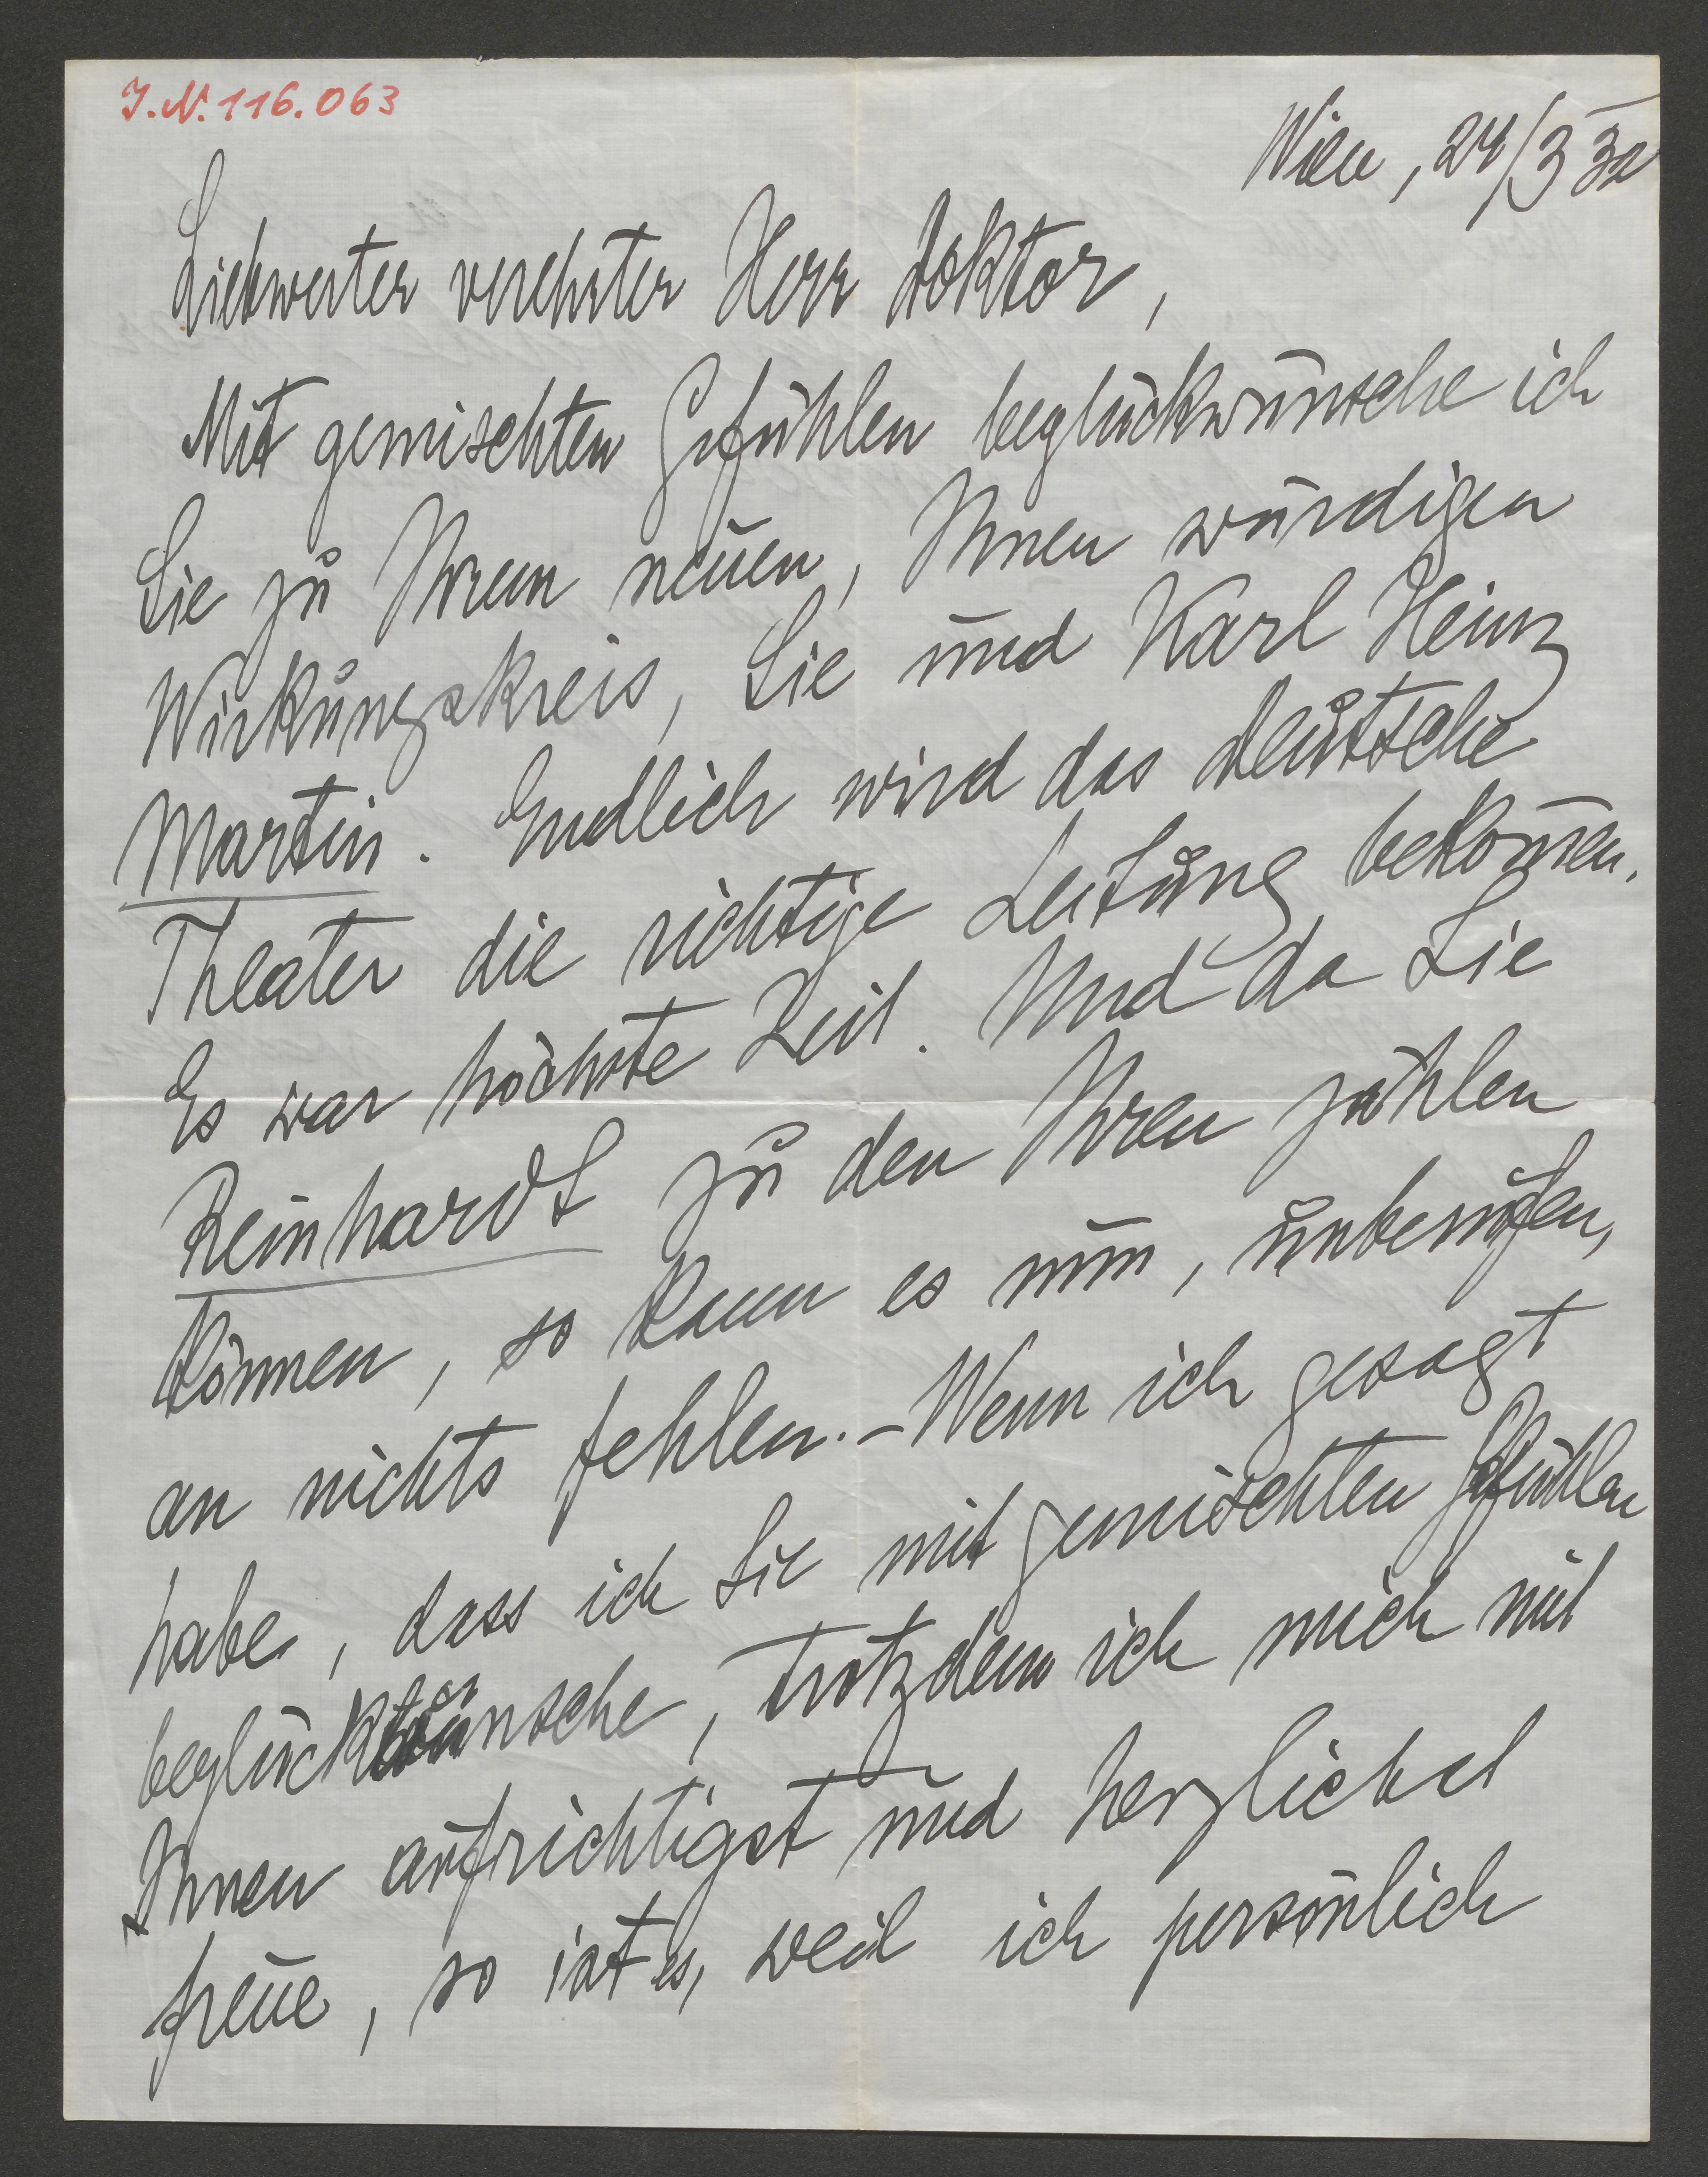 J.N. 116.063
Wien, 24/3 32
Liebwerter verehrter Herr Doktor,
Mit gemischten Gefühlen beglückwünsche ich
Sie zu Ihrem neuen, Ihnen würdigen
Wirkungskreis, Sie und Karl Heinz
Martin. Endlich wird das Deutsche
Theater die richtige Leitung bekom̄en.
Es war höchste Zeit. Und da Sie
Reinhardt zu den Ihren zählen
können, so kann es nun, unberufen,
an nichts fehlen. – Wenn ich gesagt
habe, dass ich Sie mit gemischten Gefühlen
beglückwünsche, trotzdem ich mich mit
Ihnen aufrichtigst und herzlichst
freue, so ist es, weil ich persönlich